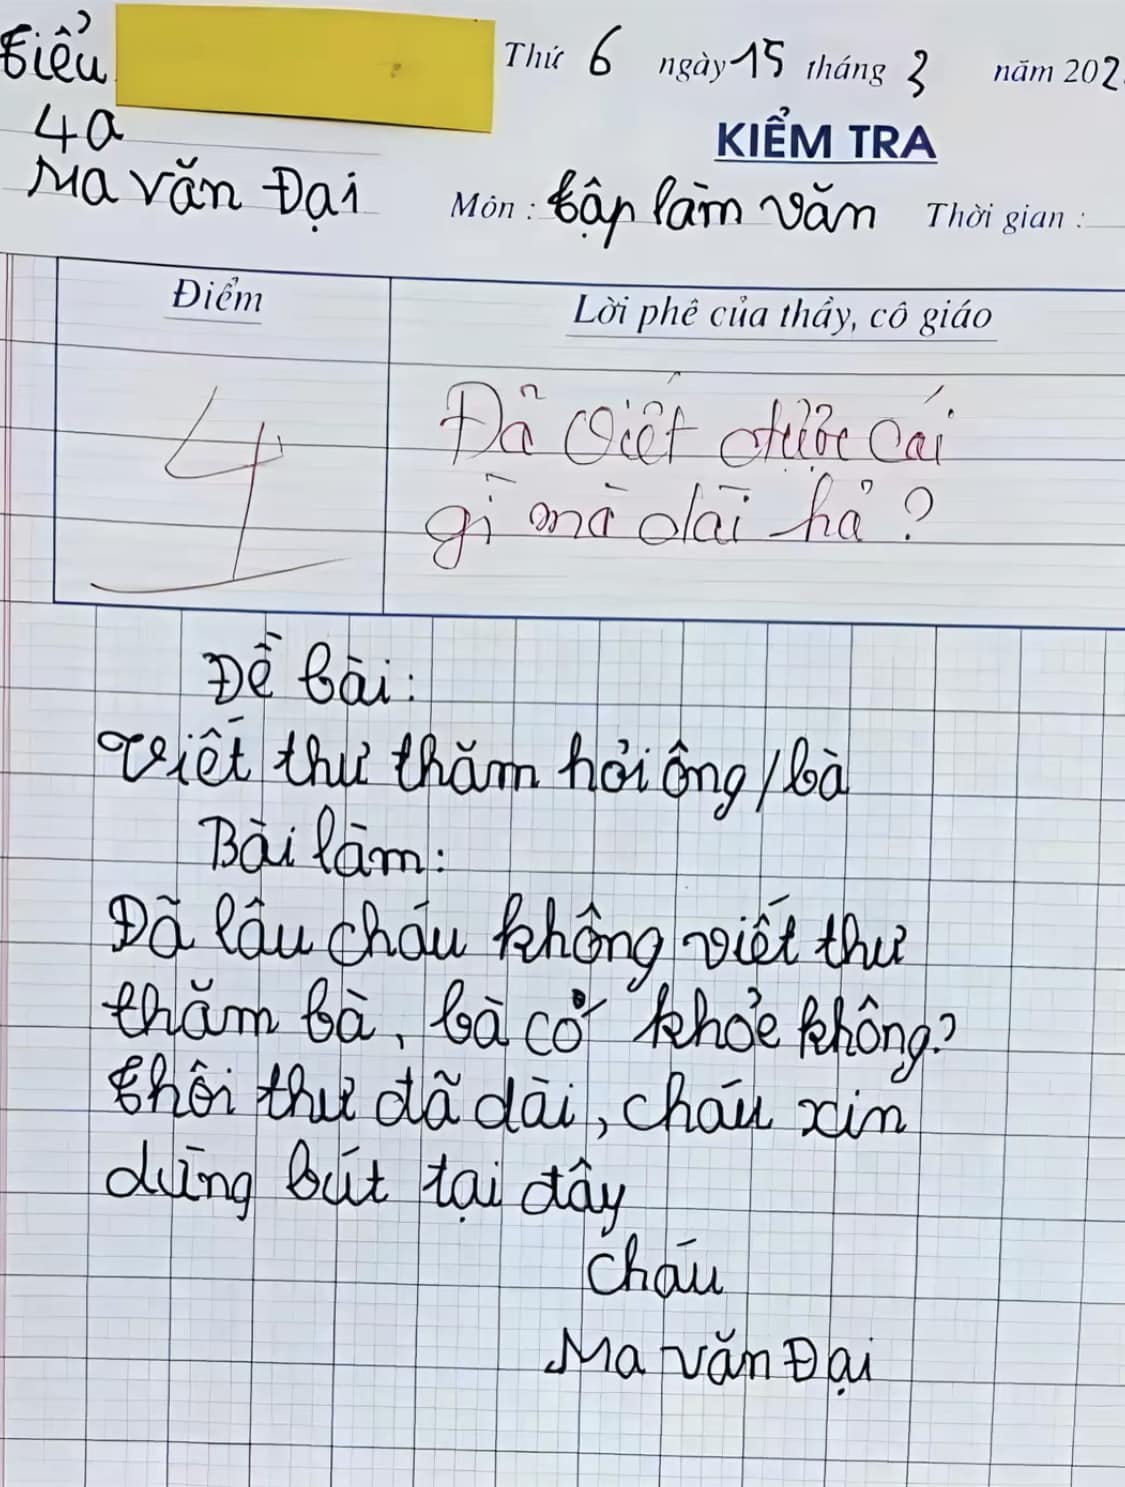 Tiểu
Thứ 6 ngày 15 tháng 3 năm 202
4a
KIỂM TRA
Ma Văn Đại
Môn : Tập làm văn Thời gian :
Điểm
Lời phê của thầy, cô giáo
4
Đã viết được cái
gì mà dài hả?
Đề bài:
Viết thư thăm hỏi ông/bà
Bài làm:
Đã lâu cháu không viết thư
thăm bà, bà có khỏe không?
Thôi thư đã dài, cháu xin
dừng bút tại đây
Cháu
Ma Văn Đại